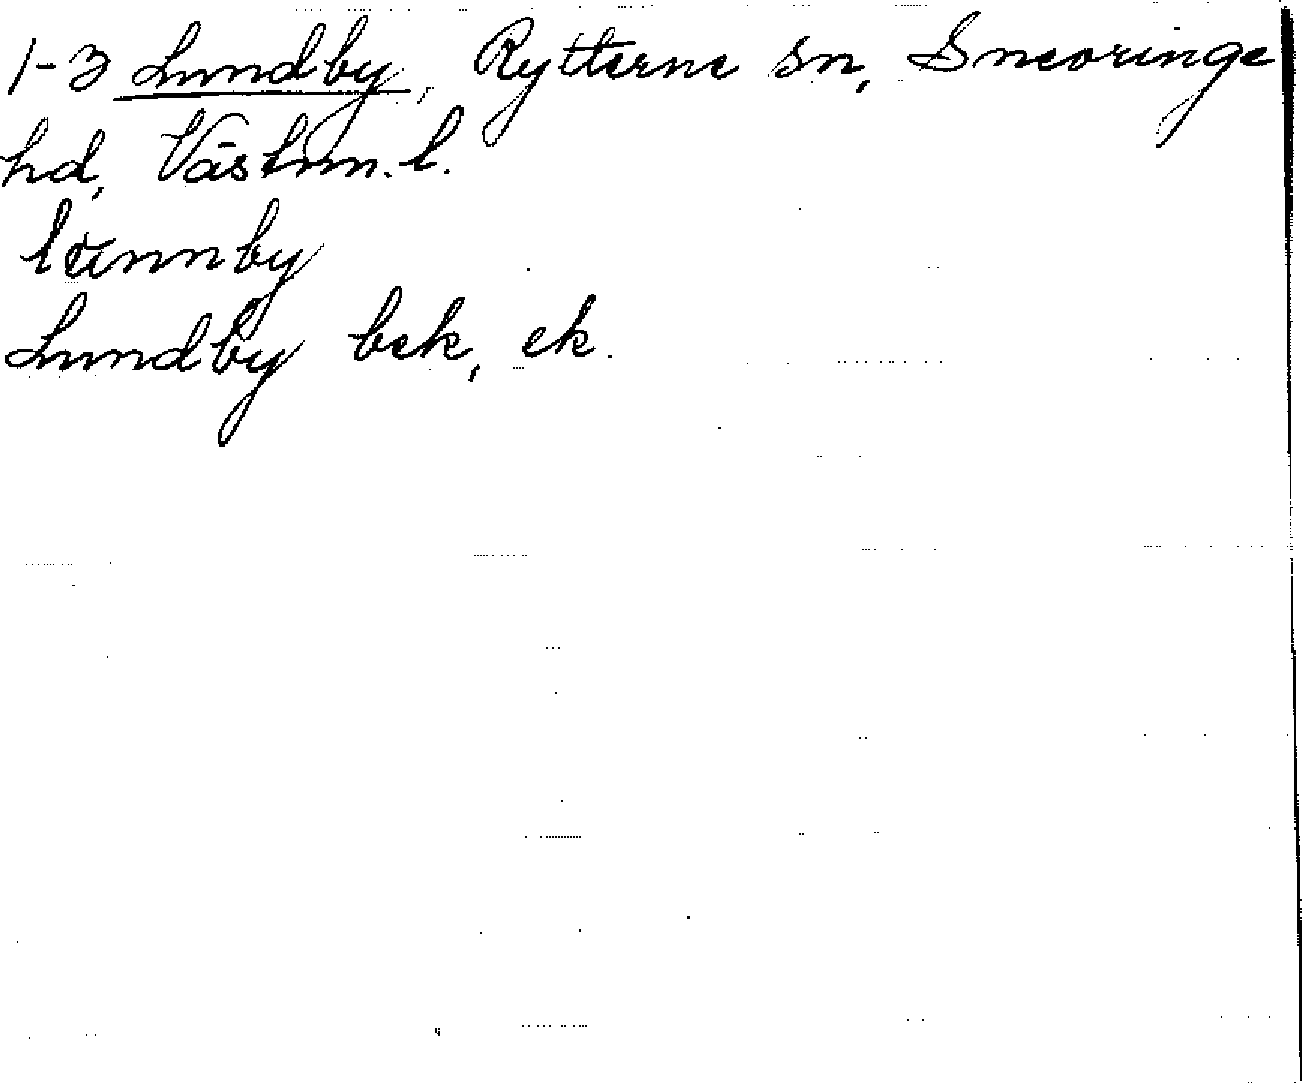 1-3 Lundby, Rytterne sn, Snevringe
hd, Västm. l.
lunnby
Lundby bek, ek.